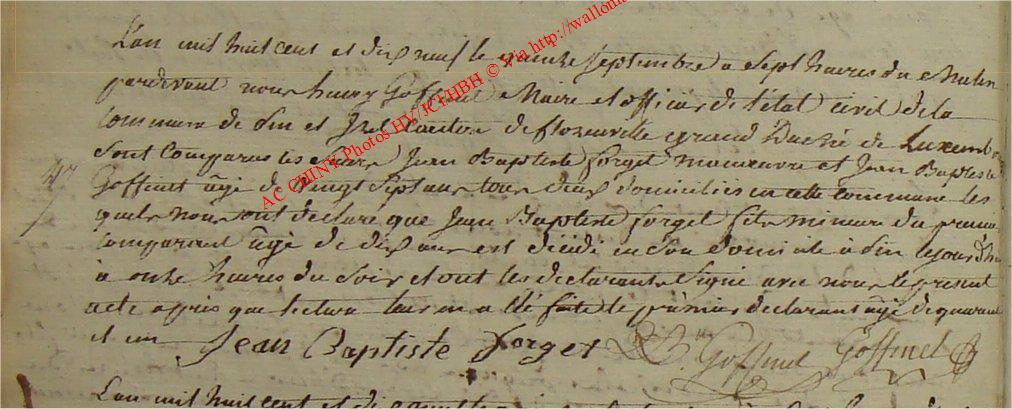 L'an mil huit cent et dix neuf le trente Septembre a Sept heures du Matin
pardevant nous henry Goffinet Maire et officier de l'état civil de la
commune de Pin et Izel Canton de florenville grand Duché de Luxemb
Sont Comparus les Jean Baptiste forget manoeuvre et Jean Baptiste
47
Goffinet âgé de Vingt Sept ans tous deux domiciliés en cette commune les
quels nous ont declaré que Jean Baptiste forget fils mineure du premier
comparant âgé de dix ans est décédé en son domicile à Pin le jour d'hier
à onze heures du Soir et ont les declarants Signé avec nous le present
acte après que lecture leur en a été faite le premier declarant âgé de quarant
et un Jean Baptiste Forget J. B.te Goffinet Goffinet
L'an mil huit cent et di
AC CHINY Photos HV/JCHHBH © via http://wallonia